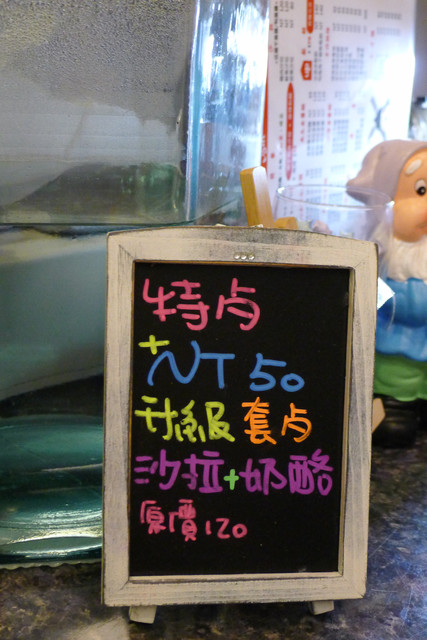 特点
+NT 50
升級套点
沙拉+奶酪
原價120